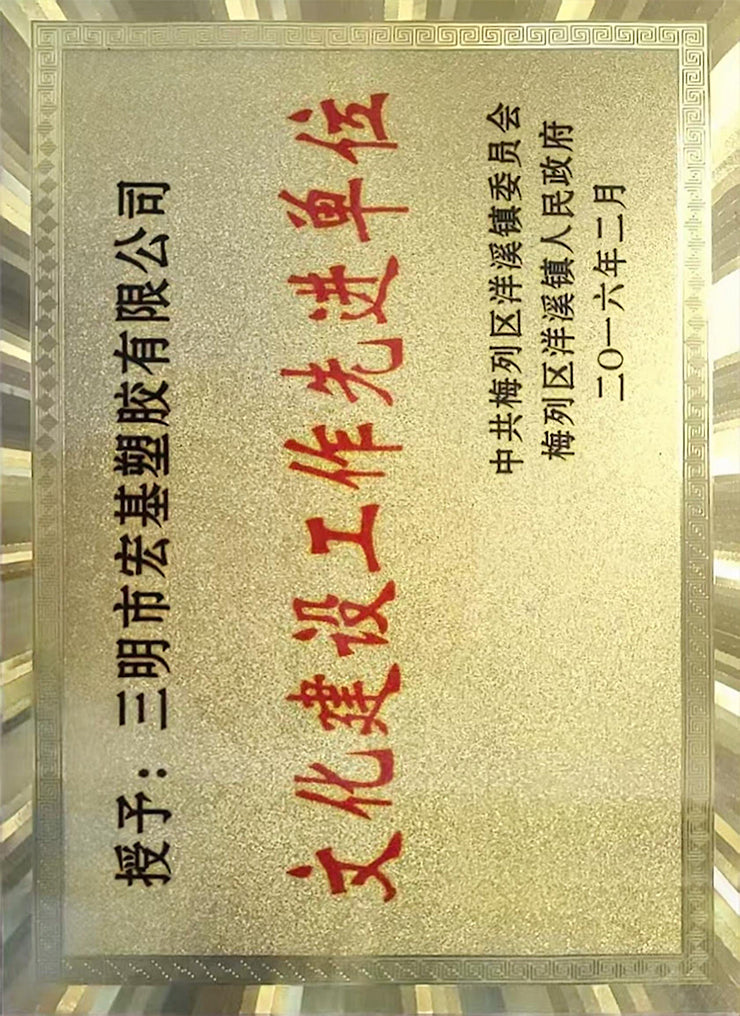 授予：三明市宏基塑胶有限公司
文化建设工作先进单位
中共梅列区洋溪镇委员会
梅列区洋溪镇人民政府
二〇一六年二月